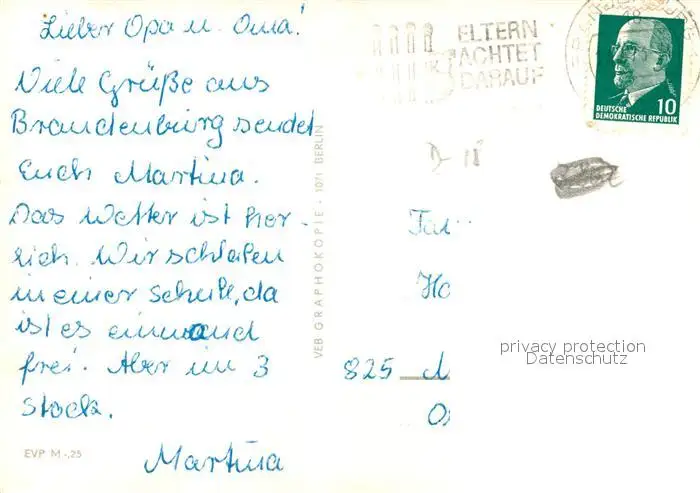 Lieber Opa u. Oma!
Viele Grüße aus
Brandenburg sendet
Euch Martina.
Das Wetter ist her-
rlich. Wir schlafen
in einer Schule, da
ist es einwand
frei. Aber im 3
Stock.
Martina
EVP M -,25
VEB GRAPHOKOPIE · 1071 BERLIN
ELTERN
ACHTET
DARAUF
10
DEUTSCHE
DEMOKRATISCHE REPUBLIK
D 18
Ho
825
privacy protection
Datenschutz